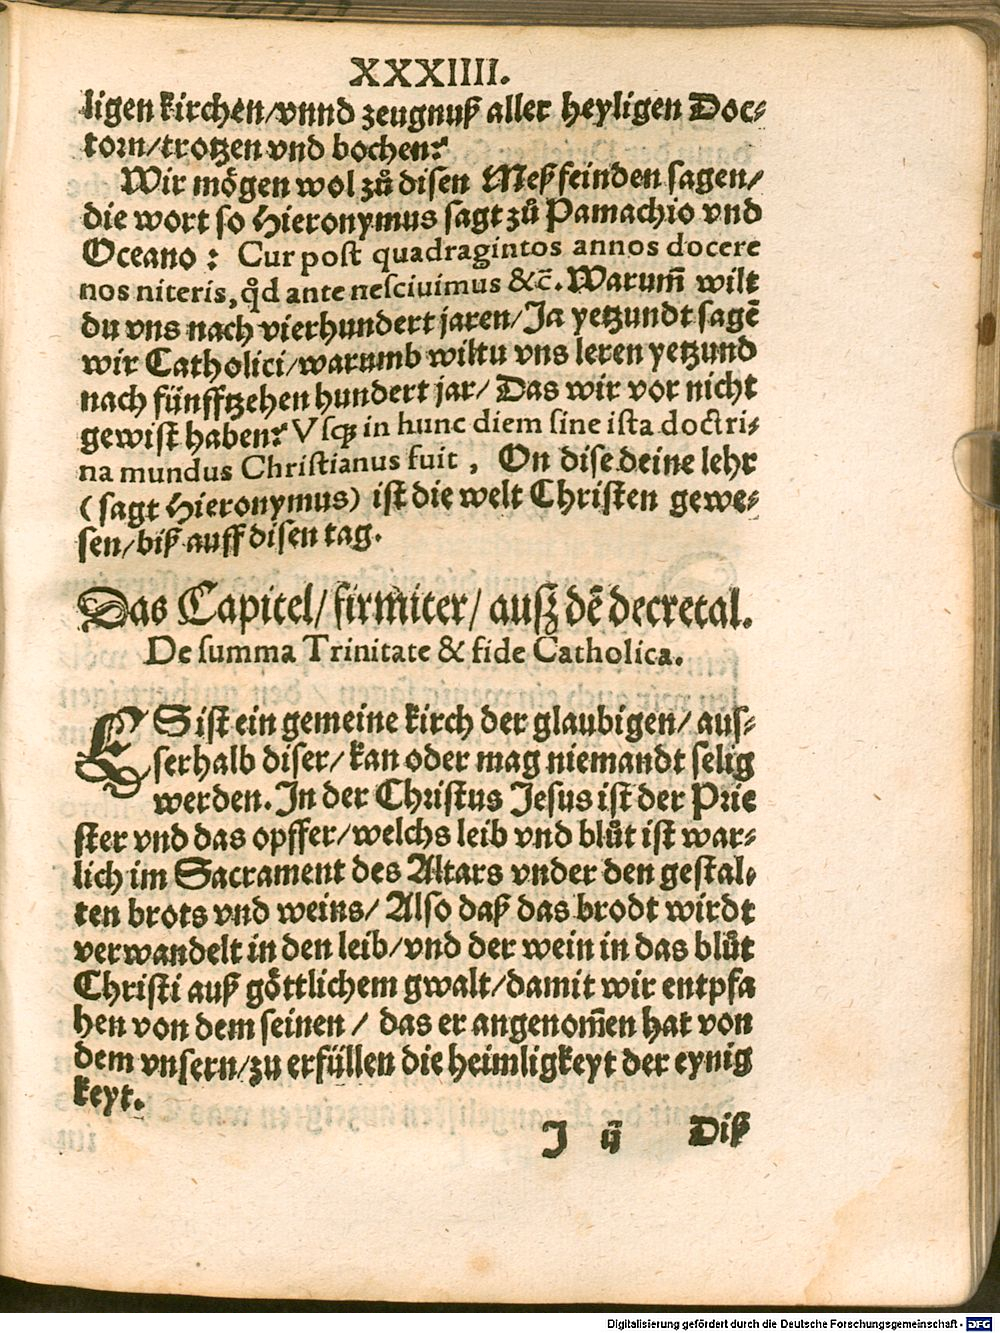 XXXIIII.
ligen kirchen/vnnd zeugnuß aller heyligen Doc⸗
torn/trotzen vnd bochen?
Wir mögen wol zů disen Meßfeinden sagen/
die wort so Hieronymus sagt zů Pamachio vnd
Oceano: Cur post quadragintos annos docere
nos niteris, qd̓ ante nesciuimus &c̄. Warum̄ wilt
du vns nach vierhundert jaren/Ja yetzundt sagē
wir Catholici/warumb wiltu vns leren yetzund
nach fünfftzehen hundert jar/ Das wir vor nicht
gewist haben? Vsqꝫ in hunc diem sine ista doctri⸗
na mundus Christianus fuit, On dise deine lehr
(sagt Hieronymus) ist die welt Christen gewe⸗
sen/biß auff disen tag.
Das Capitel/firmiter/ ausz dē decretal.
De summa Trinitate & fide Catholica.
ES ist ein gemeine kirch der glaubigen/ aus⸗
serhalb diser/ kan oder mag niemandt selig
werden. In der Christus Jesus ist der Prie
ster vnd das opffer/welchs leib vnd blůt ist war⸗
lich im Sacrament des Altars vnder den gestal⸗
ten brots vnd weins/ Also daß das brodt wirdt
verwandelt in den leib/vnd der wein in das blůt
Christi auß göttlichem gwalt/damit wir entpfa
hen von dem seinen / das er angenom̄en hat von
dem vnsern/zu erfüllen die heimligkeyt der eynig
keyt.
J ij Diß
Digitalisierung gefördert durch die Deutsche Forschungsgemeinschaft - DFG